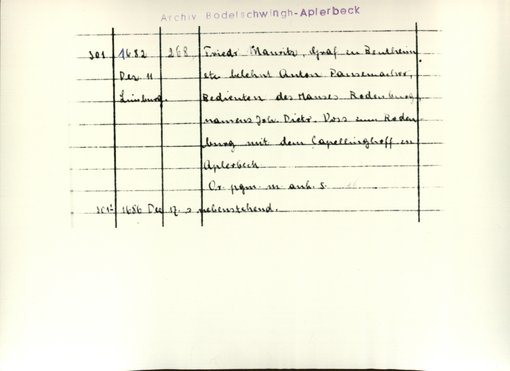 Archiv Bodelschwingh-Aplerbeck
301 1682 268 Friedr. Mauritz, Graf zu Bentheim
Dez. 11 etc belehnt Anton Pansemacher,
Limburg. Bedienten des Hauses Rodenburg,
namens Joh. Dietr. Voss zum Roden-
burg mit dem Capellinghoff zu
Aplerbeck
Or. pgm. m anh. S.
1686 Dez 17. s nebenstehend.